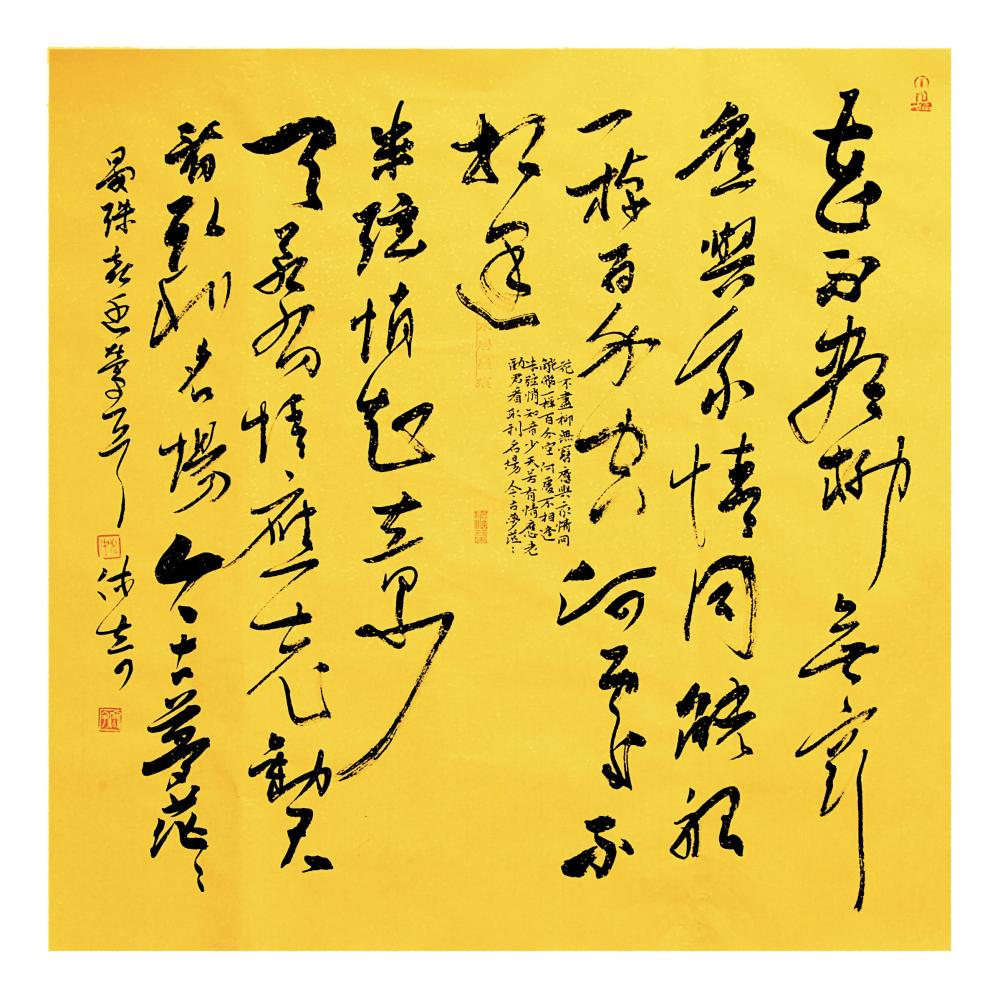 花不盡柳無窮
應與我情同觥船
一棹百分空何處不
相逢
花不盡柳無窮應與我情同
觥船一棹百分空何處不相逢
朱弦悄知音少天若有情應老
勸君看取利名場今古夢茫々
朱弦悄知音少
天若有情應老勸君
看取利名場今古夢茫々
晏殊喜迁鶯